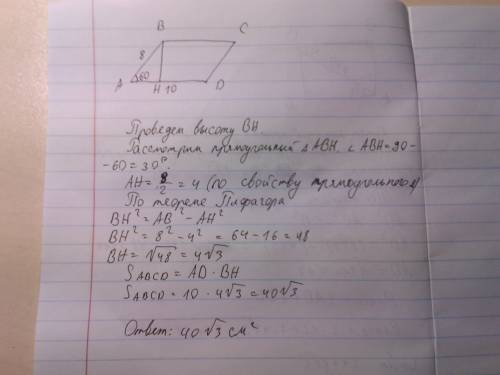 B C
8
A 60 H 10 D
Проведем высоту BH.
Рассмотрим прямоугольный △ABH. ∠ABH=90-
-60=30°.
AH=8/2=4 (по свойству прямоугольного △)
По теореме Пифагора
BH²=AB²-AH²
BH²=8²-4²=64-16=48
BH=√48=4√3
SABCD=AD·BH
SABCD=10·4√3=40√3
Ответ: 40√3 см²